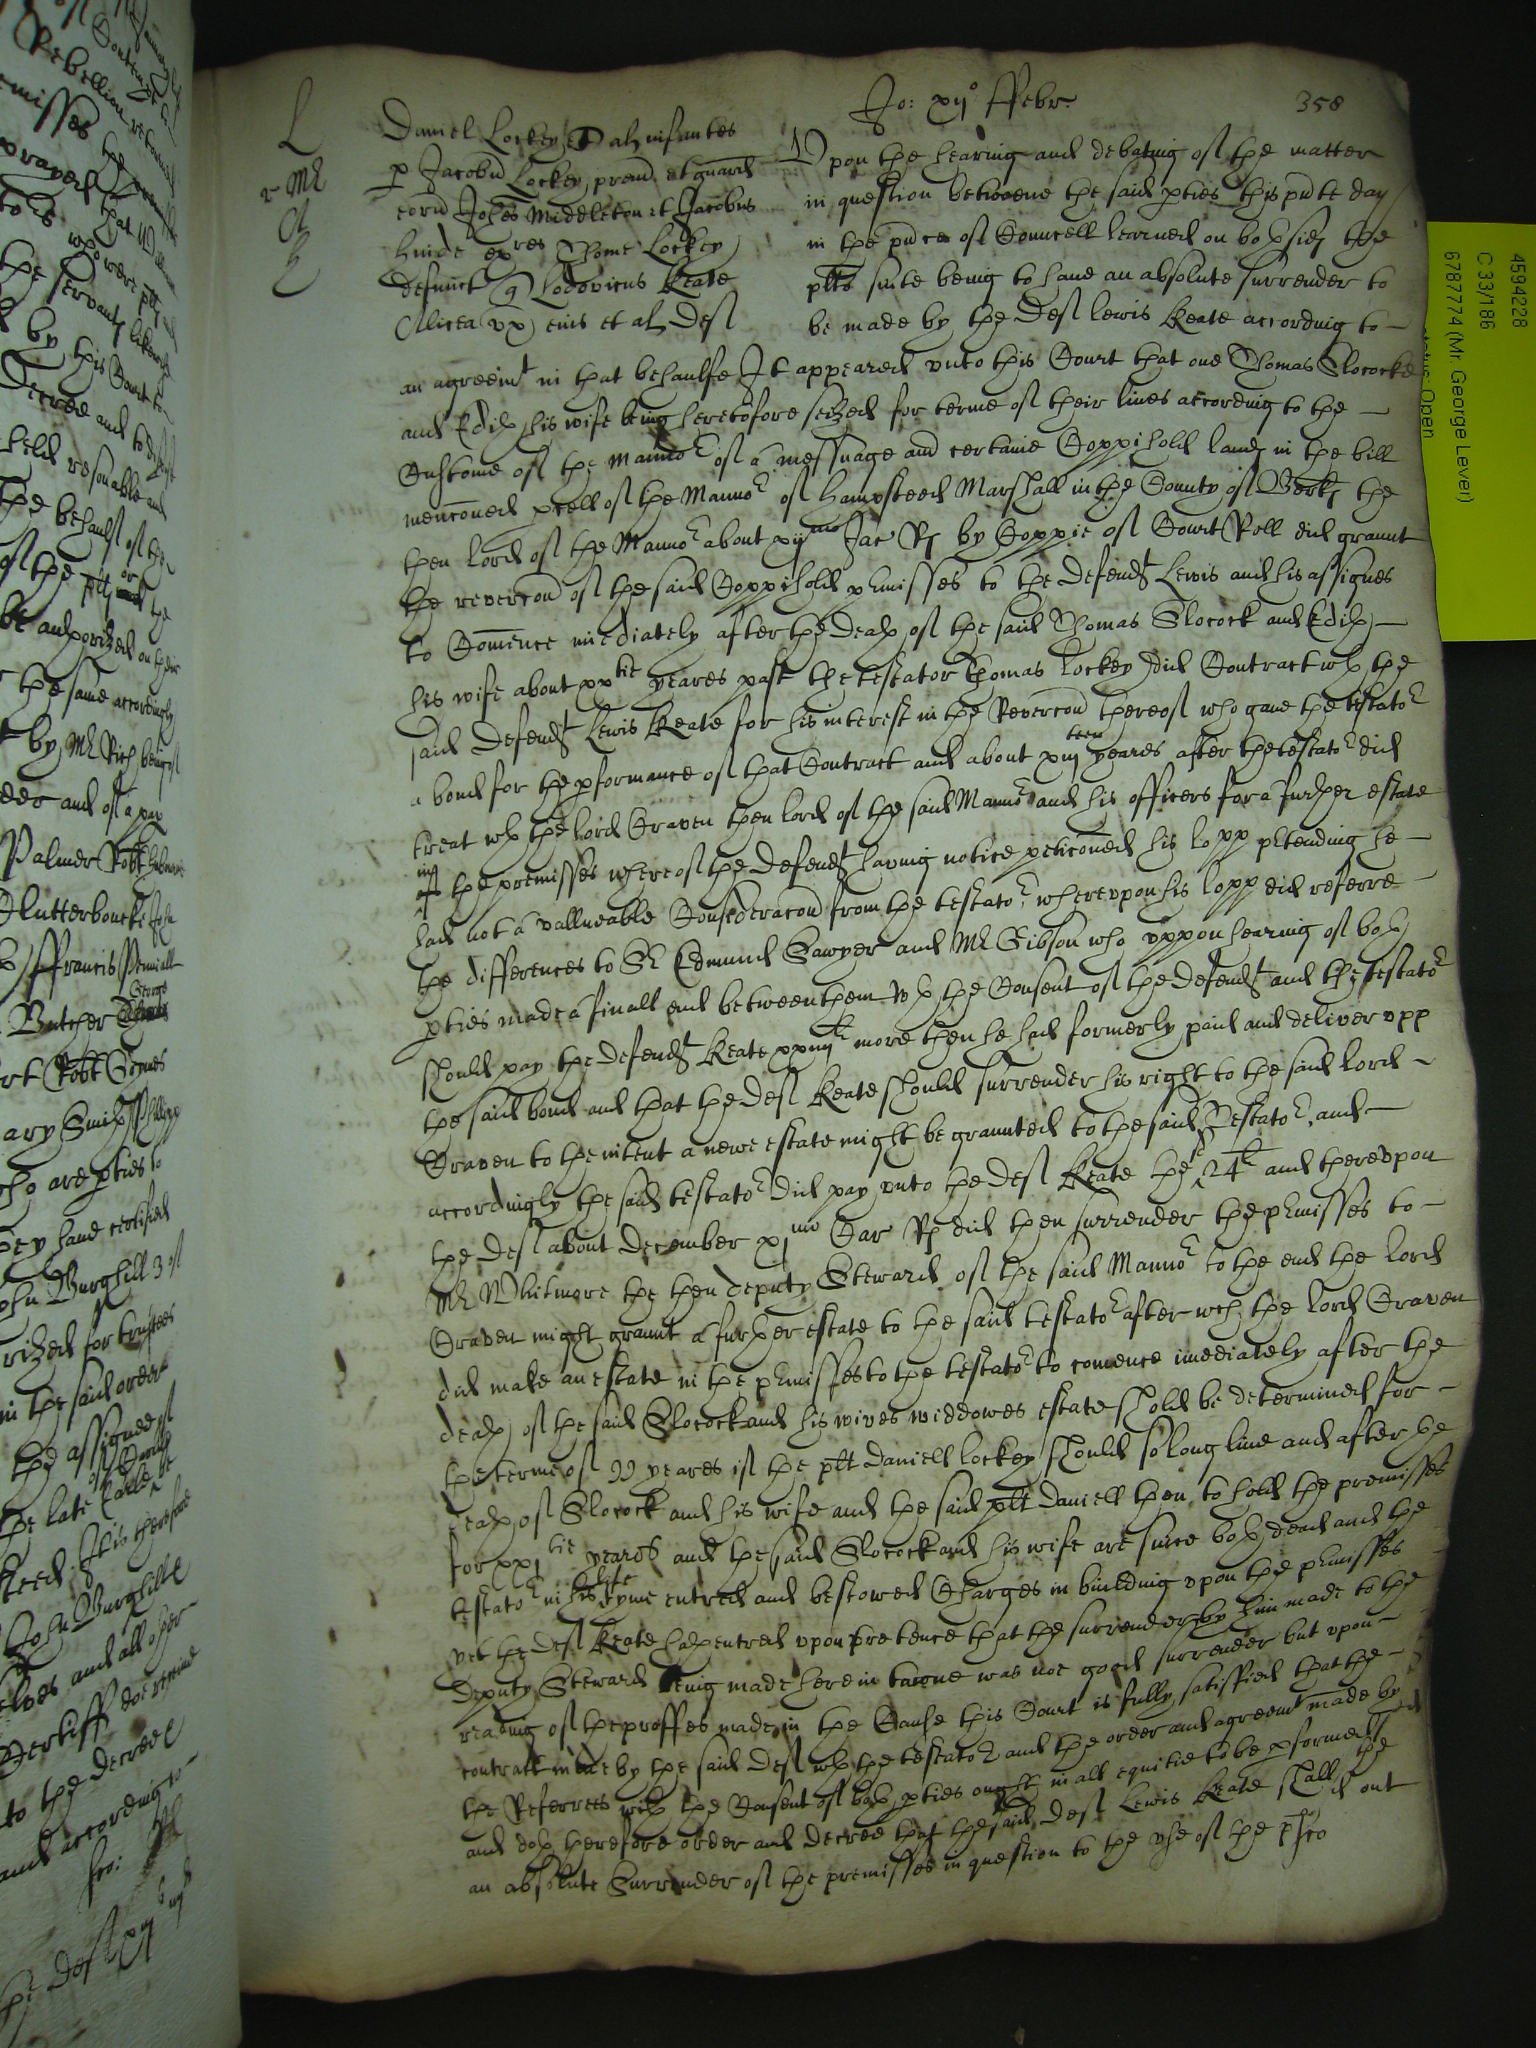 Jo: xij° ffebr.
358
L
r Mr
A
Daniel Lockey et al infantes
p Jacobu Lockey, prem et guard
eoru Johes Middleton et Jacobus
hinde exres Thome Lockey
defunct q Lodovicus Keate
Alicea vx eius et al def
Vpon the hearing and debating of the matter
in question betweene the said pties this pnte day
in the pnce of Councell learned on both sides the
pltes suite being to haue an absolute surrender to
be made by the def Lewis Keate according to
an agreemt in that behaulfe It appeared vnto this Court that one Thomas Slococke
and Edith his wife being heretofore seized for terme of their liues according to the
Custome of the Manno of a messuage and certaine Coppihold lands in the bill
menconed pcell of the Manno of Hampsteed Marshall in the County of Berks the
then lord of the Manno about xijmo Jac Rs by Coppie of Court Roll did graunt
the revercon of the said Coppihold pmisses to the Defendt Lewis and his assignes
to Comence imediately after the death of the said Thomas Slocock and Edith
his wife about xxtie yeares past the testator Thomas Lockey did Contract wth the
said Defendt Lewis Keate for his interest in the Revercon thereof who gaue the testato
a bond for the pformance of that Contract and about xiijteen yeares after the testato did
treat wth the lord Craven then lord of the said Manno and his officers for a further estate
in of the premisses whereof the Defendt having notice peticoned his lopp ptending he
had not a valluable Consideracon from the testato wherevpon his lopp did referre
the differences to Sr Edmund Sawyer and Mr Gibson who vppon hearing of both
pties made a finall end between them wth the Consent of the defendt and the testato
should pay the defendt Keate xxiiijl more then he had formerly paid and deliver vpp
the said bond and that the def Keate should surrender his right to the said lord
Craven to the intent a newe estate might be graunted to the said Testato, and
accordingly the said testato did pay vnto the def Keate the 24l and therevpon
the def about December xjmo Car Rs did then surrender the pmisses to
Mr Whitmore the then deputy Steward of the said Manno to the end the lord
Craven might graunt a further estate to the said testato after wch the lord Craven
did make an estate in the pmisses to the testato to comence imediately after the
death of the said Slocock and his wives widdowes estate shold be determined for
the terme of 99 yeares if the plt Daniell Lockey should so long liue and after the
death of Slocock and his wife and the said plt Daniell then to hold the premisses
for xxjtie yeares and the said Slocock and his wife are since both dead and the
testato in his life tyme entred and bestowed Charges in building vpon the pmisses
yet the def Keate hath entred vpon pretence that the surrender by him made to the
Deputy Steward being made here in towne was not good surrender but vpon
reading of the proffes made in the Cause this Court is fully satisfied that the
contract made by the said def wth the testato and the order and agreemt made by
the Referrees with the Consent of both pties ought in all equitie to be pformed
and doth therefore order and decree that the said def Lewis Keate shall
an absolute Surrender of the premisses in question to the vse of the

4594228
C 33/186
6787774 (Mr. George Lever)
Open
Rebellion
prayed that
by this Court
Decree and
held resonable and
the behaulf of the
of the
be authorized on their
the same accordingly
by Mr Rich being
Palmer Robt
Clutterboucke
ffrancis
Butcher George
Robt
ary Smith Phillipp
who are pties to
they haue certified
John Burghill 3 of
for trustees
in the said order
the assignes of
the late Earle
It is therefore
John Burghill
and all other
to the decree
and according to
the Def